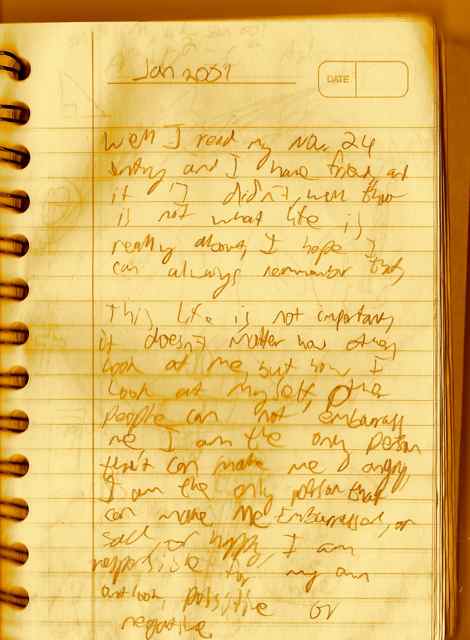 Jan 2009
DATE
Well I read my Nov. 24
entry and I have tried, and
it didn't well this
is not what life is
really about, I hope I
can always remember that,
This life is not important,
it doesn't matter how others
look at me, but how I
look at myself, Other
people can not embarrass
me I am the only person
that can make me angry,
I am the only person that
can make me Embarrassed, or
sad, or happy I am
responsible for my own
outlook, possitive or
negative.